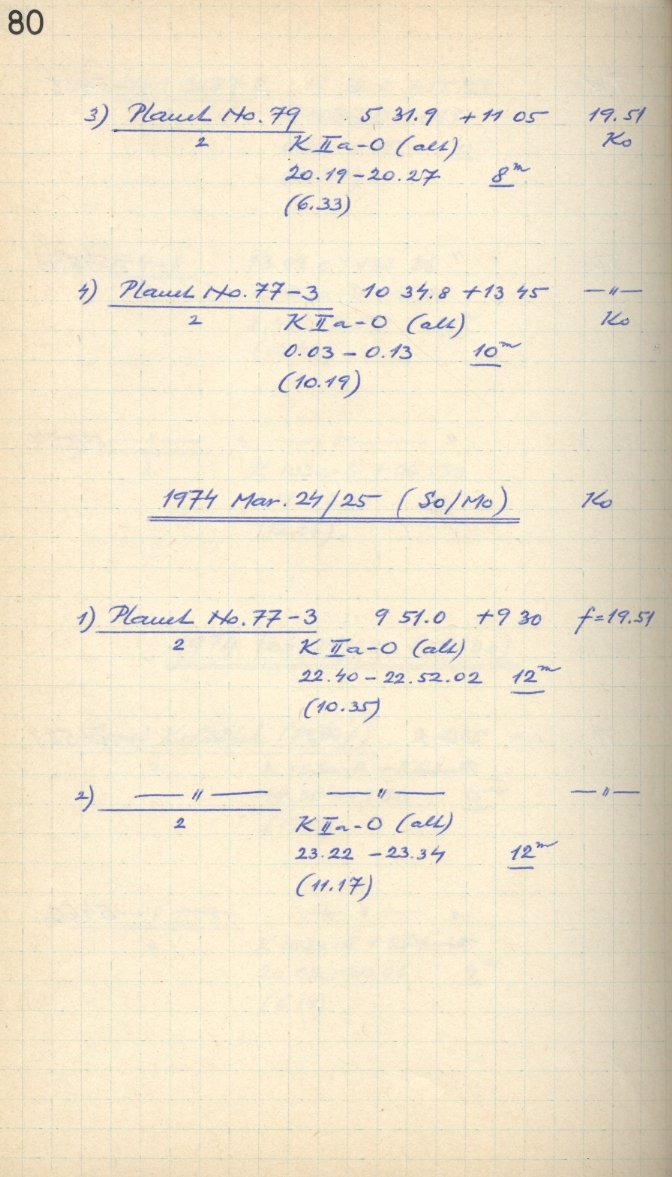 80
3) Planet No. 79 5 31.9 +11 05 19.51
2 K IIa-O (alt) Ko
20.19 - 20.27 8m
(6.33)
4) Planet No. 77-3 10 34.8 +13 45 —"—
2 K IIa-O (alt) Ko
0.03 - 0.13 10m
(10.19)
1974 Mar. 24/25 (So/Mo) Ko
1) Planet No. 77-3 9 51.0 +9 30 f=19.51
2 K IIa-O (alt)
22.40 - 22.52.02 12m
(10.35)
2) —"— —"— —"—
2 K IIa-O (alt)
23.22 - 23.34 12m
(11.17)